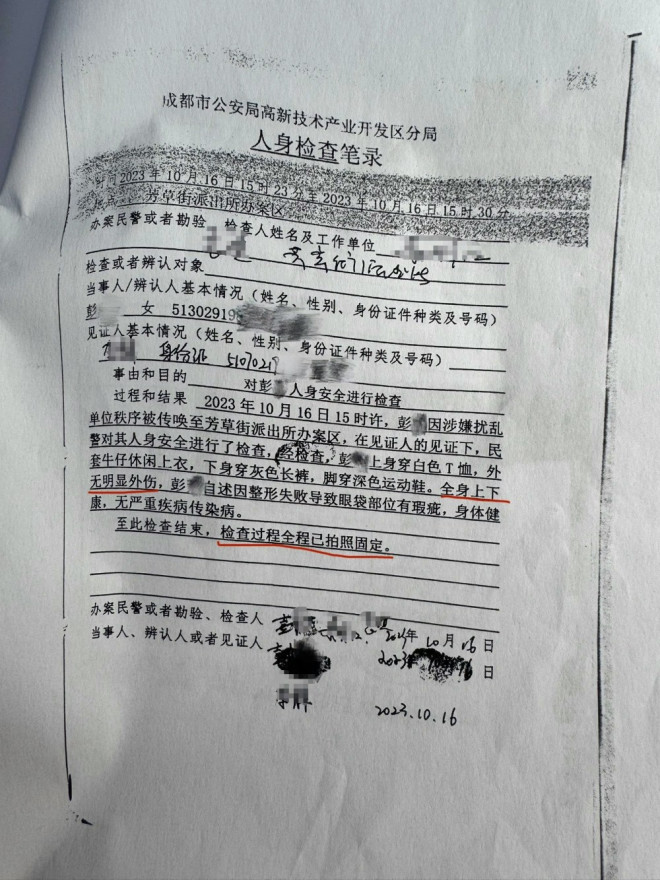 成都市公安局高新技术产业开发区分局
人身检查笔录
时间 2023 年 10 月 16 日 15 时 23 分至 2023 年 10 月 16 日 15 时 30 分
地点 芳草街派出所办案区
办案民警或者勘验、检查人姓名及工作单位
检查或者辨认对象
当事人/辨认人基本情况（姓名、性别、身份证件种类及号码）
彭 女 51302919
见证人基本情况（姓名、性别、身份证件种类及号码）
身份证 5107021
事由和目的 对彭 人身安全进行检查
过程和结果 2023 年 10 月 16 日 15 时许，彭 因涉嫌扰乱
单位秩序被传唤至芳草街派出所办案区，在见证人的见证下，民
警对其人身安全进行了检查，经检查，彭 上身穿白色 T 恤，外
套牛仔休闲上衣，下身穿灰色长裤，脚穿深色运动鞋。全身上下
无明显外伤，彭 自述因整形失败导致眼袋部位有瑕疵，身体健
康，无严重疾病传染病。
至此检查结束，检查过程全程已拍照固定。
办案民警或者勘验、检查人 年 10 月 16 日
当事人、辨认人或者见证人 2023 日
2023.10.16